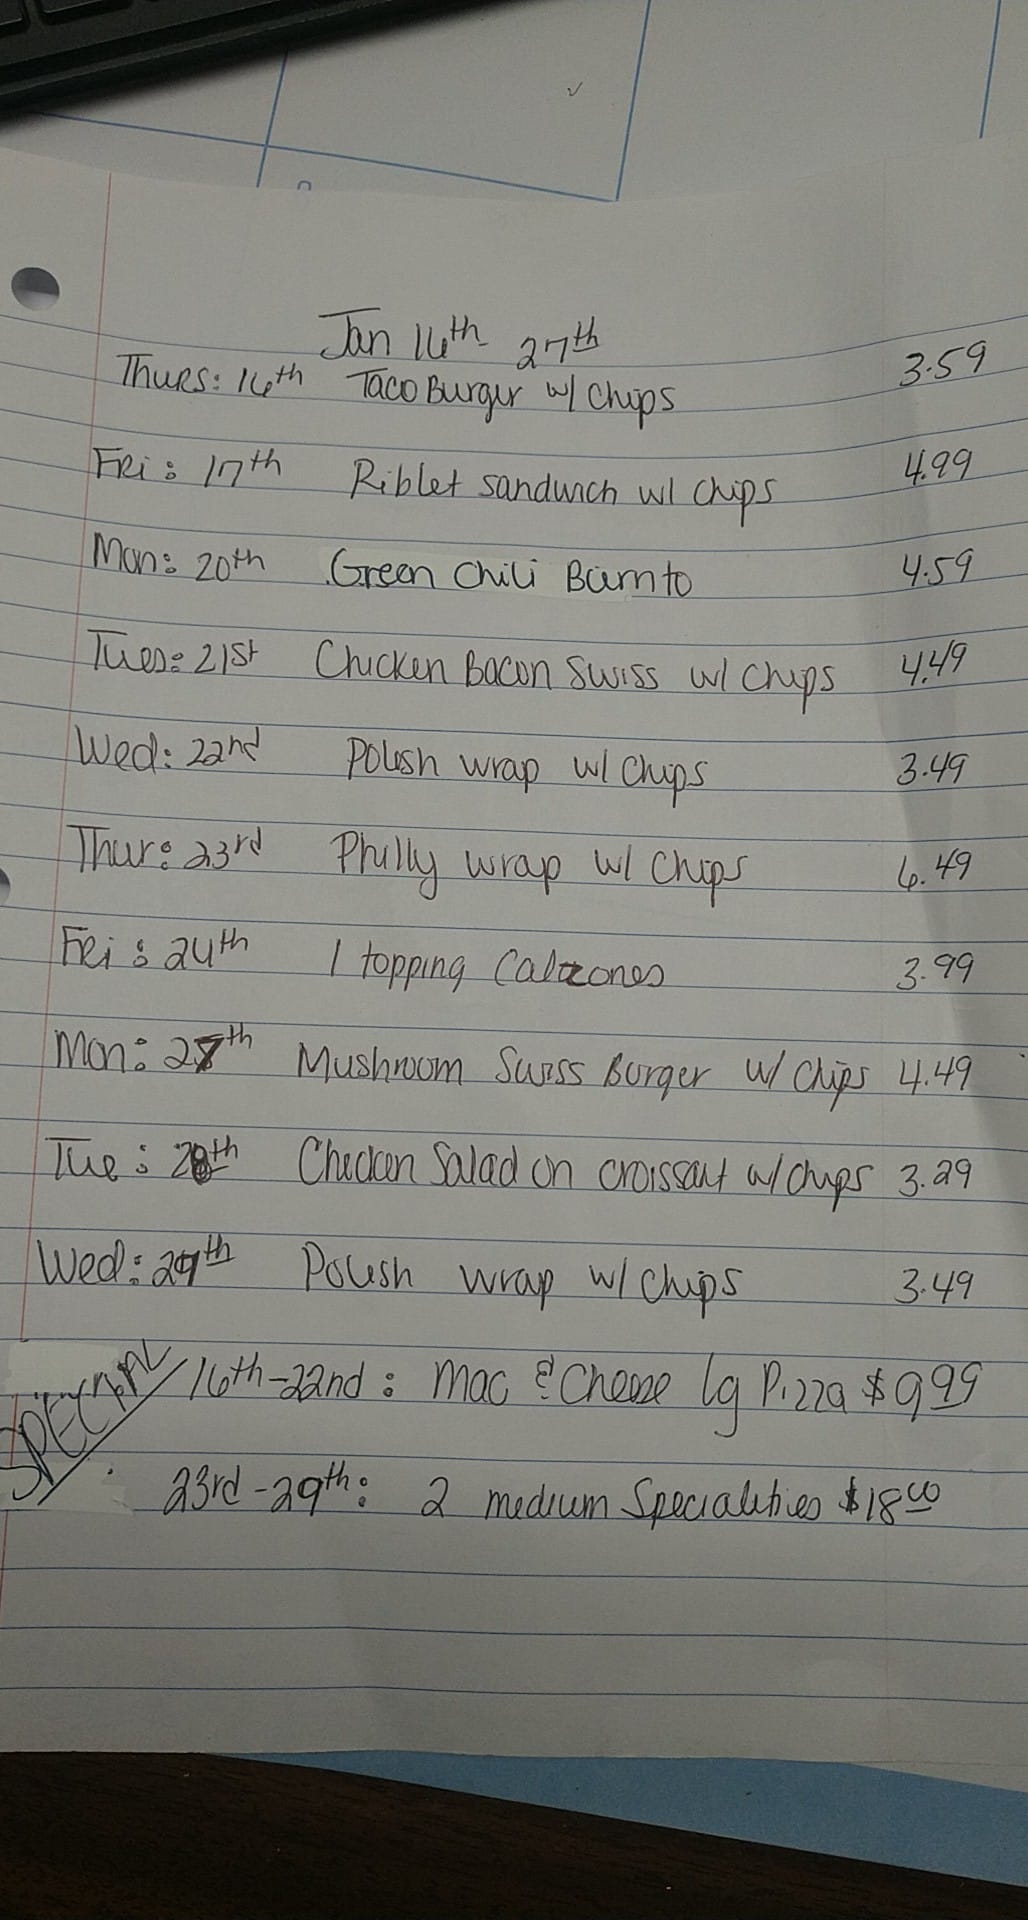 Jan 16th - 27th
Thurs: 16th Taco Burger w/ Chips 3.59
Fri: 17th Riblet sandwich w/ Chips 4.99
Mon: 20th Green Chili Burrito 4.59
Tues: 21st Chicken Bacon Swiss w/ Chips 4.49
Wed: 22nd Polish wrap w/ Chips 3.49
Thur: 23rd Philly wrap w/ Chips 6.49
Fri: 24th 1 topping Calzones 3.99
Mon: 27th Mushroom Swiss Burger w/ Chips 4.49
Tue: 28th Chicken Salad on croissant w/ chips 3.29
Wed: 29th Polish wrap w/ Chips 3.49
SPECIAL 16th-22nd: Mac & Cheese lg Pizza $9.99
23rd-29th: 2 medium Specialities $18.00